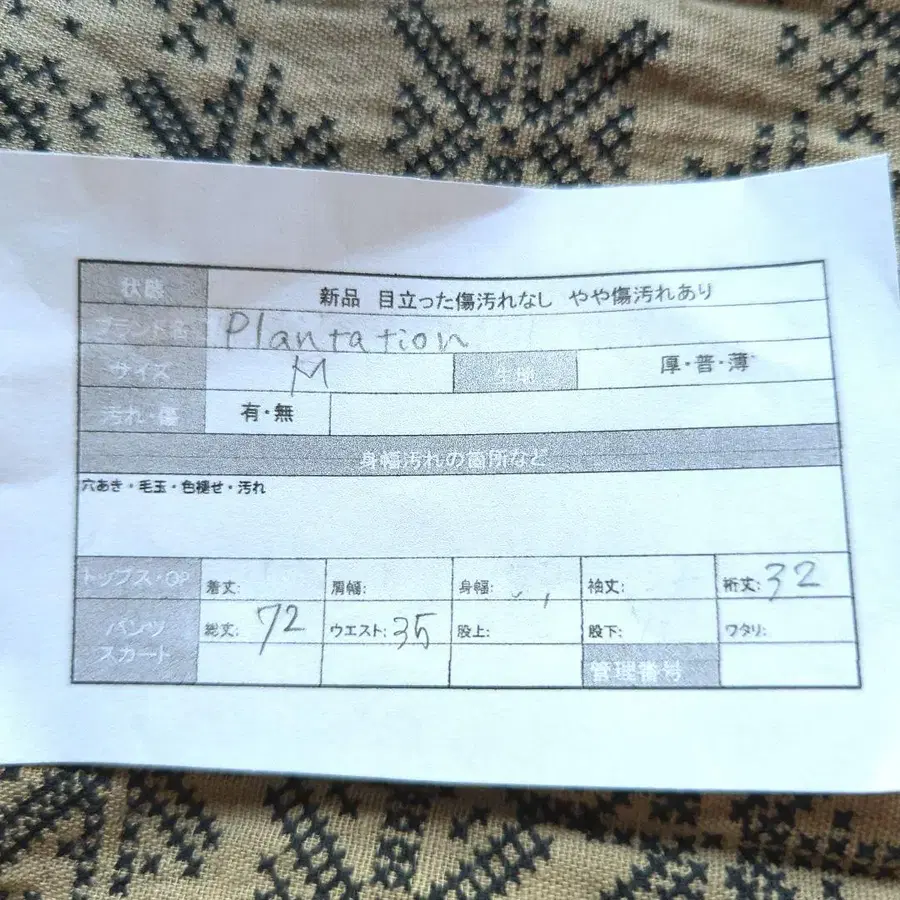 状態 新品 目立った傷汚れなし やや傷汚れあり
ブランド名 Plantation
サイズ M 生地 厚・普・薄
汚れ・傷 有・無
身幅汚れの箇所など
穴あき・毛玉・色褪せ・汚れ
トップス・OP 着丈: 肩幅: 身幅: 袖丈: 裄丈: 32
パンツ 総丈: 72 ウエスト: 35 股上: 股下: ワタリ:
スカート 管理番号